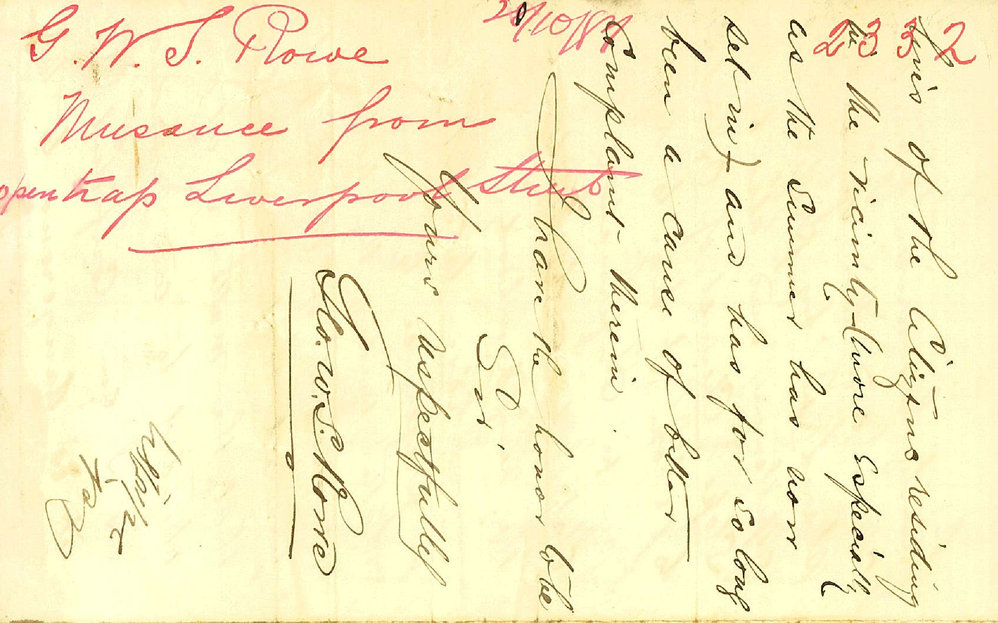 G. W. S. Rowe
Nusance from
open trap Liverpool Street
2332
of the Citizens residing
in the vicinity (more especially
as the Summer has now
set in) and has for so long
been a cause of bitter
Complaint therein.
I have the honor to be
Sir
Yours respectfully
Geo. W. S. Rowe